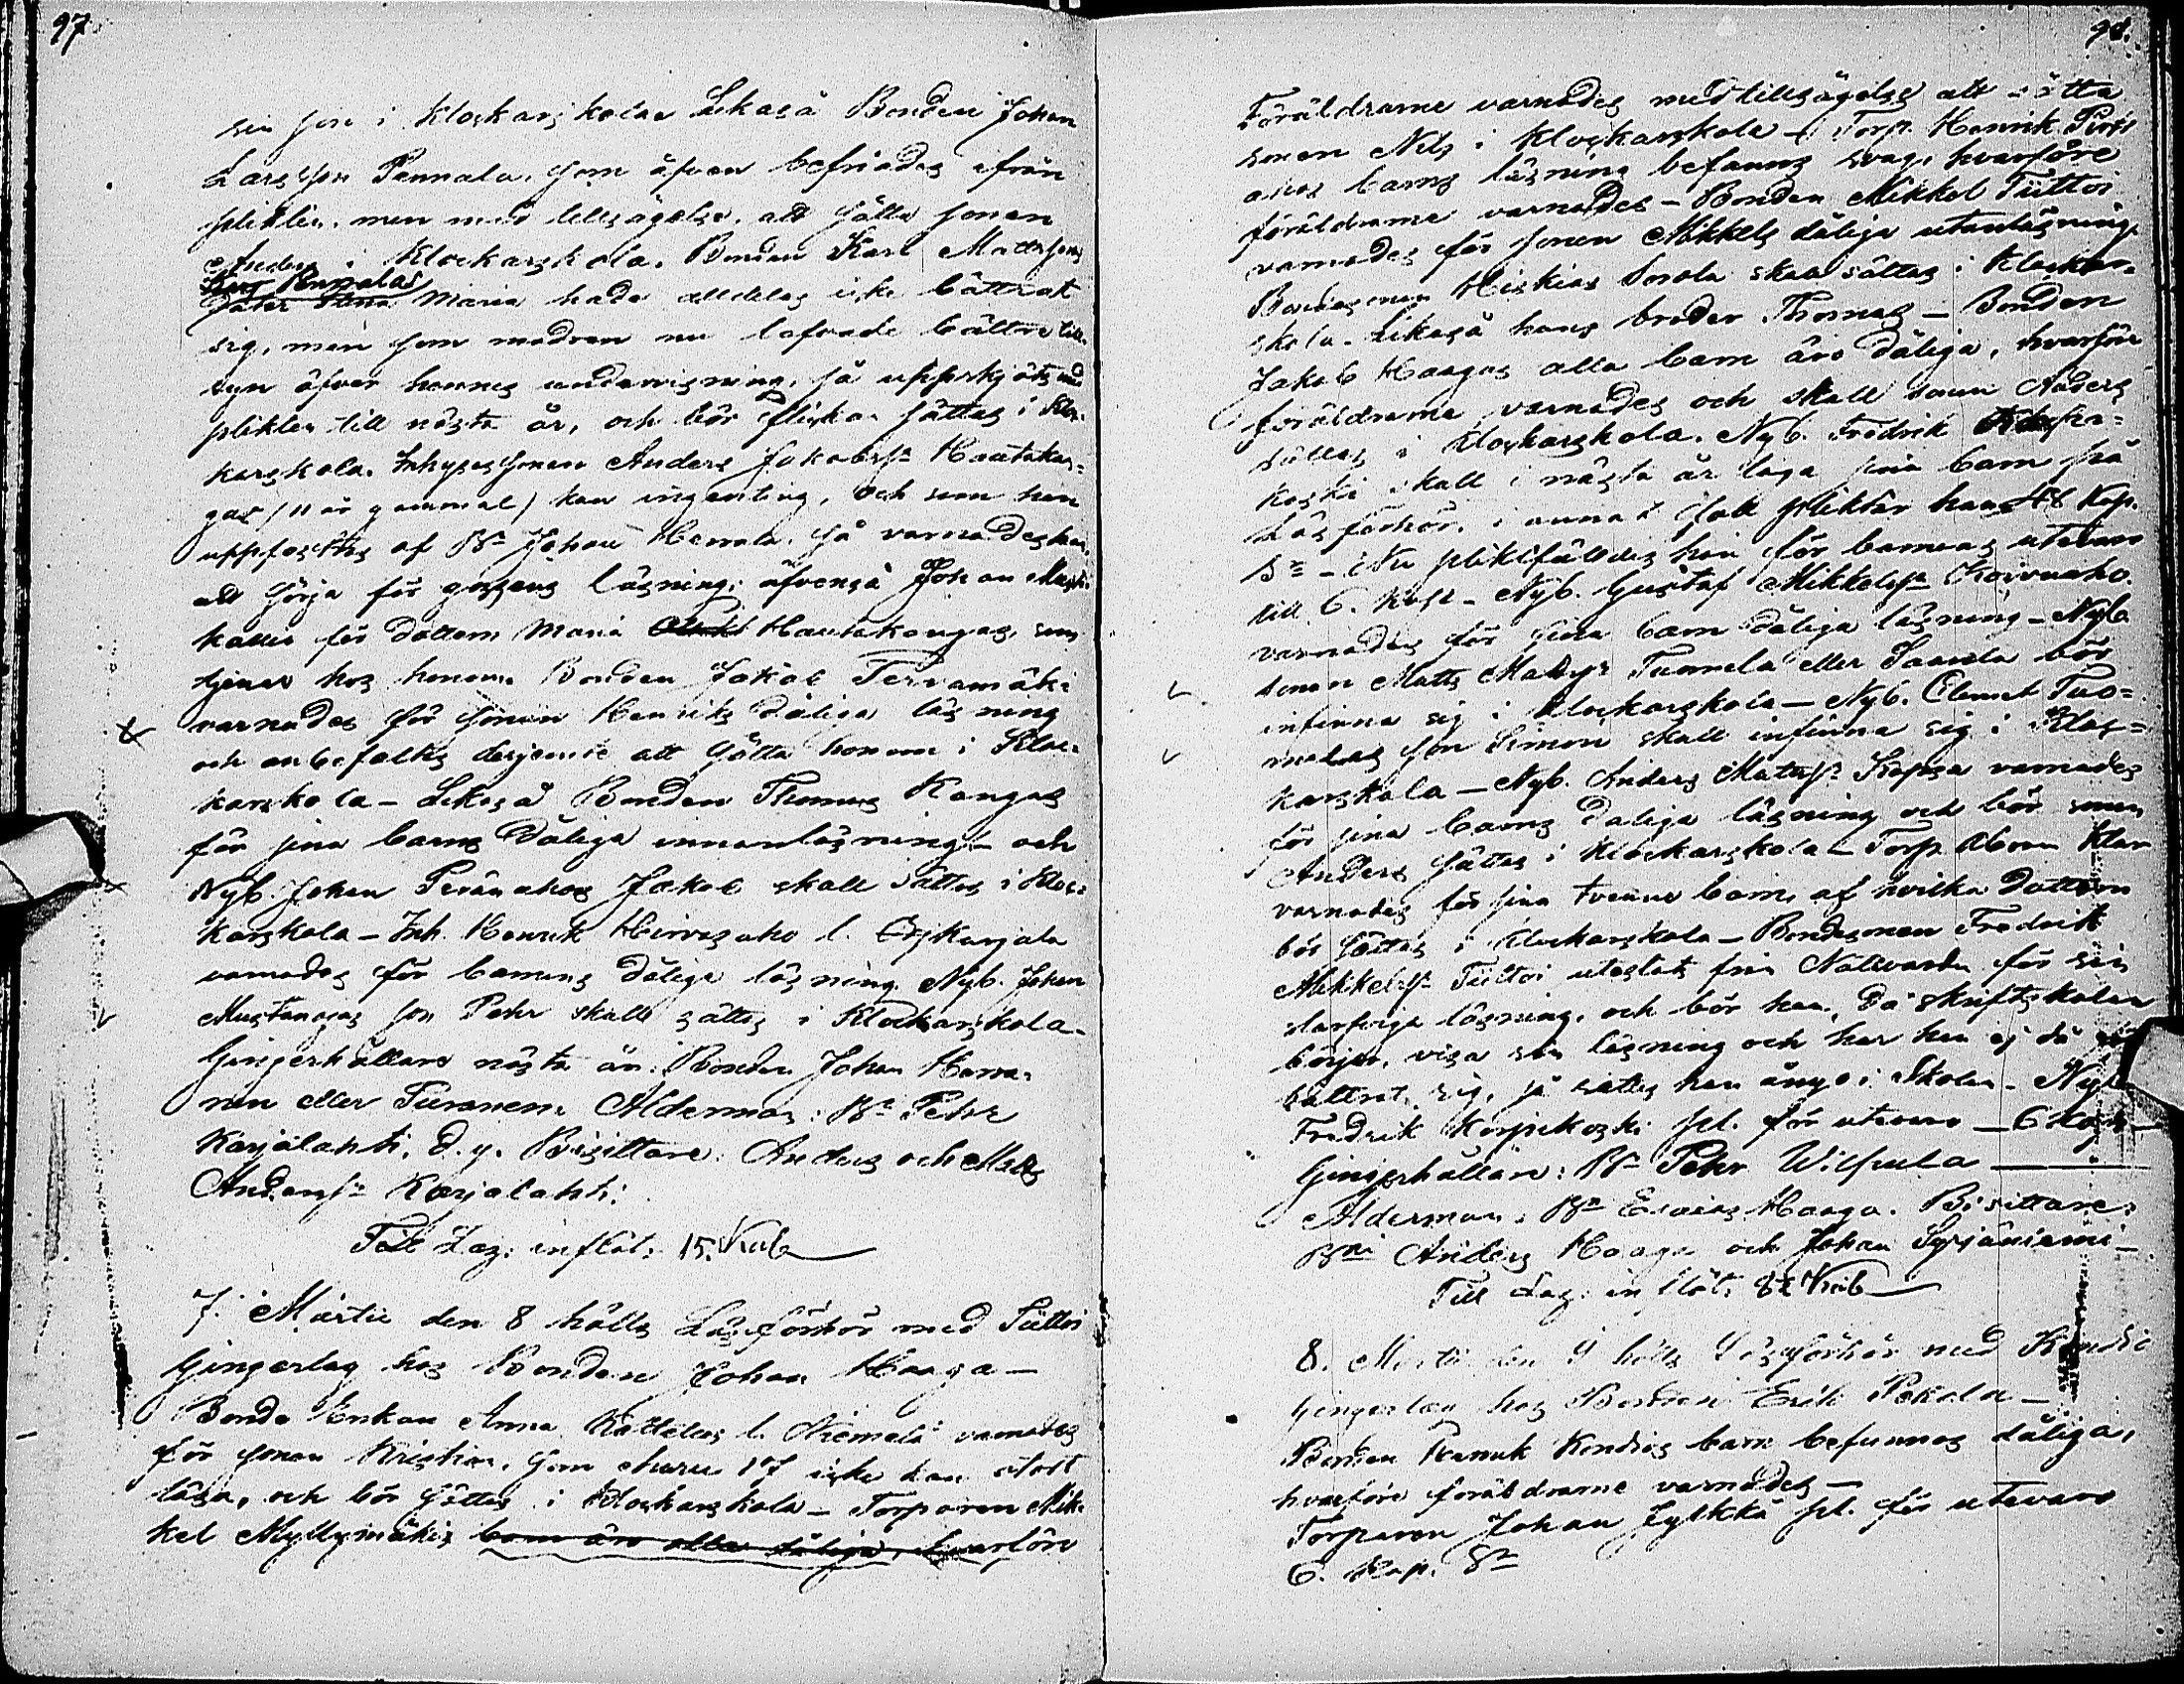 97
sin son i Klockarskolan Likaså Bonden Johan
Larsson Pennala, som äfven befriades ifrån
plikten, men med tillsägelse, att sätta sonen
Anders i Klockarskola. Bonden Karl Mattssons
dotter Maria hade alldeles icke bättrat
sig, men som modren nu lofvade bättre till-
syn öfver hennes undervisning, så uppskjöts med
plikten till nästa år, och bör flickan sättas i Kloc-
karskola. Inhysessonen Anders Jakobss. Hautakan-
gas (11 år gammal) kan ingenting, och som han
uppfostras af Bn Johan Herrala, så varnades han,
att sörja för gossens läsning, äfvenså Johan
för dottern Maria Hautakangas, som
tjenar hos honom. Bonden Jakob Tervamäki
varnades för sonen Henriks dåliga läsning
och anbefaltes derjemte att sätta honom i Kloc-
karskola - Likaså Bonden Thomas Kangas
för sina barns dåliga innanläsning - och
Nyb. Johan Peränahos Jakob skall sättas i Kloc-
karskola - Inh. Henrik Hirvasaho l. Karjala
varnades för barnens dåliga läsning. Nyb. Johan
Mustanojas son Pehr skall sättas i Klockarskola.
Gingerhållare nästa år: Bonden Johan
eller Turonen. Ålderman: Bn Pehr
Karjalahti, d.y. Bisittare: Anders och Matts
Anderss. Karjalahti.
Till Laz: inflöt: 15. Kub
7. Martii den 8 hölls Läseförhör med Tüttoi
Gingerlag hos Bonden Johan Haaga -
Bonde Enkan Anna Kattelus l. Niemelä varnades
för sonen Kristian, som icke kan
läsa, och bör sättas i Klockarskola - Torparen Mik-
kel Myllymäkis barn äro alla dåliga, hvarföre
98.
Föräldrarne varnades med tillsägelse att sätta
sonen Nils i Klockarskola - Torp. Henrik
barns läsning befanns svag, hvarföre
föräldrarne varnades - Bonden Mikkel Tüttoi
varnades för sonen Mikkels dåliga utanläsning.
Bondesonen Hiskias Sorola skall sättas i Klockar-
skola. Likaså hans broder Thomas - Bonden
Jakob Haagas alla barn äro dåliga, hvarföre
föräldrarne varnades och skall sonen Anders
sättas i Klockarskola. Nyb. Fredrik
koski skall i nästa år taga sina barn på
Läsförhör, i annat fall pliktar han Kop.
Sr - Nu pliktfälldes han för barnens utevaro
till 6. Kop. - Nyb. Gustaf Mikkelss. Koivuaho
varnades för sina barns dåliga läsning - Nyb.
sonen Matts Mattss. Tunnela eller Saarela bör
infinna sig i Klockarskola - Nyb. Clemet Tuo-
melas son Simon skall infinna sig i Kloc-
karskola - Nyb. Anders Mattss. Kopsa varnades
för sina barns dåliga läsning och bör sonen
Anders sättas i Klockarskola - Torp.
varnades för sina tvenne barn, af hvilka dottern
bör sättas i Klockarskola - Bondesonen Fredrik
Mikkelss. Tüttoi utestots från Nattvarden för sin
slarfviga läsning, och bör han, då skriftskolan
börjar, visa sin läsning och har han ej då
bättrat sig, så sättes han ånyo i Skolan - Nyb.
Fredrik Korpikoski pl. för utevaro - 6 Kop. -
Gingerhållare: Bn Pehr Wilpula
Ålderman: Bn Haaga. Bisittare:
Bni Anders Haaga och Johan Syrjäniemi -
Till Laz: inflöt: Kub
8. Martii den 9 hölls Läseförhör med Kondie
Gingerlag hos Bonden Erik Pekola -
Bonden Henrik Kondies barn befunnos dåliga,
hvarföre föräldrarne varnades -
Torparen Johan Jylkkä pl. för utevaro
6. Kop. Sr